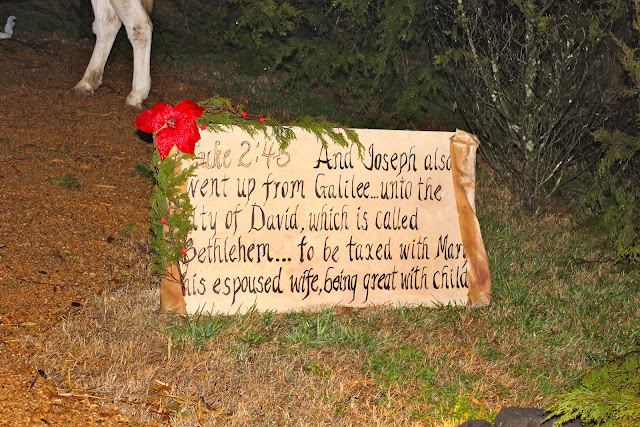 Luke 2:45 And Joseph also
went up from Galilee...unto the
City of David, which is called
Bethlehem... to be taxed with Mary
his espoused wife, being great with child